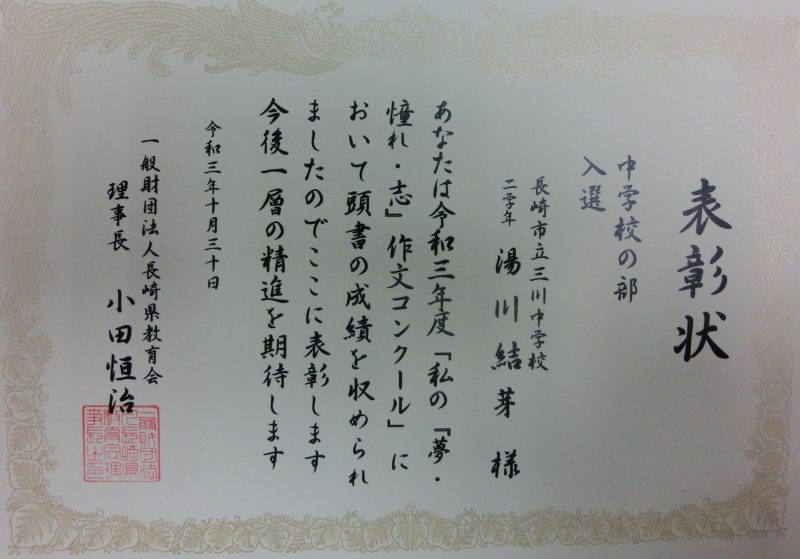 表彰状
中学校の部
入選
長崎市立三川中学校
二学年 湯川結芽 様
あなたは令和三年度「私の『夢・
憧れ・志』作文コンクール」に
おいて頭書の成績を収められ
ましたのでここに表彰します
今後一層の精進を期待します
令和三年十月三十日
一般財団法人長崎県教育会
理事長 小田恒治